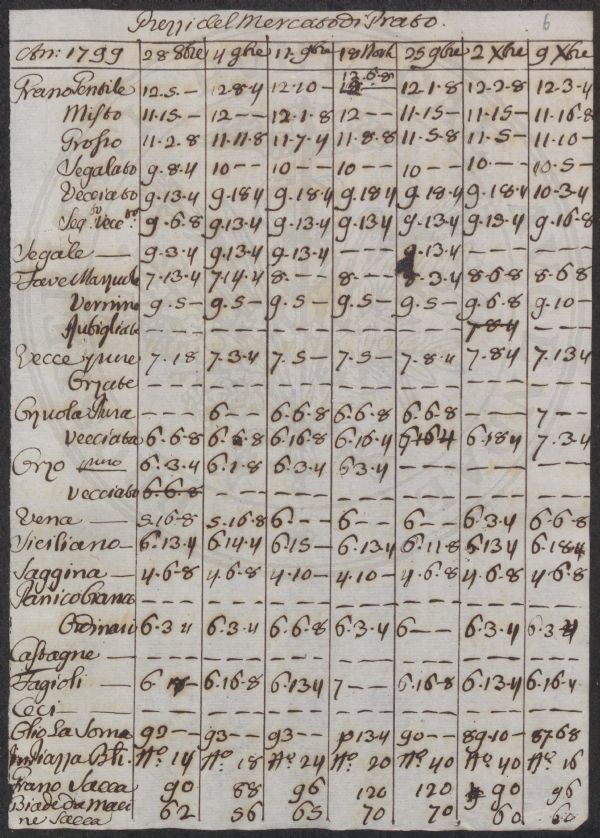 Prezzi del Mercato di Prato. 6
An: 1799 28 8bre 4 9bre 11 9bre 18 25 9bre 2 Xbre 9 Xbre
12.6.8
Grano Gentile 12.5— 12.8.4 12.10— 12.1.8 12.2.8 12.3.4
Misto 11.15— 12—— 12.1.8 12—— 11.15— 11.15— 11.16.8
Grosso 11.2.8 11.11.8 11.7.4 11.8.8 11.5.8 11.5— 11.10—
Segalato 9.8.4 10—— 10—— 10—— 10—— 10—— 10.5—
Vecciato 9.13.4 9.18.4 9.18.4 9.18.4 9.18.4 9.18.4 10.3.4
Seg.to Vecc.to 9.6.8 9.13.4 9.13.4 9.13.4 9.13.4 9.13.4 9.16.8
Segale — 9.3.4 9.13.4 9.13.4 ——— 9.13.4 ——— ———
Fave 7.13.4 7.14.4 8.—— 8.—— 8.3.4 8.6.8 8.6.8
Vernine 9.5— 9.5— 9.5— 9.5— 9.5— 9.6.8 9.10—
——— ——— ——— ——— ——— 7.8.4 ———
Vecce pure 7.18 7.3.4 7.5— 7.5— 7.8.4 7.8.4 7.13.4
Orzate ——— ——— ——— ——— ——— ——— ———
Pura ——— 6—— 6.6.8 6.6.8 6.6.8 ——— 7——
Vecciata 6.6.8 6.6.8 6.16.8 6.16.4 6.16.4 6.18.4 7.3.4
Orzo puro 6.3.4 6.1.8 6.3.4 6.3.4 ——— ——— ———
Vecciato 6.6.8 ——— ——— ——— ——— ——— ———
Vena — 5.16.8 5.16.8 6.—— 6—— 6—— 6.3.4 6.6.8
Siciliano— 6.13.4 6.14.4 6.15— 6.13.4 6.11.8 6.13.4 6.18.4
Saggina — 4.6.8 4.6.8 4.10— 4.10— 4.6.8 4.6.8 4.6.8
Panico bianco ——— ——— ——— ——— ——— ——— ———
Ordinario 6.3.4 6.3.4 6.6.8 6.3.4 6—— 6.3.4 6.3.4
Castagne ——— ——— ——— ——— ——— ——— ———
Fagioli — 6. 6.16.8 6.13.4 7—— 6.16.8 6.13.4 6.16.4
Ceci — ——— ——— ——— ——— ——— ——— ———
Olio La Soma 92—— 93—— 93—— 90—— 89.10— 87.6.8
In Piazza No 14 No 18 No 24 No 20 No 40 No 40 No 16
Grano Sacca 90 88 96 120 120 90 96
Biade da Maci
ne Sacca 62 56 65 70 70 60 60